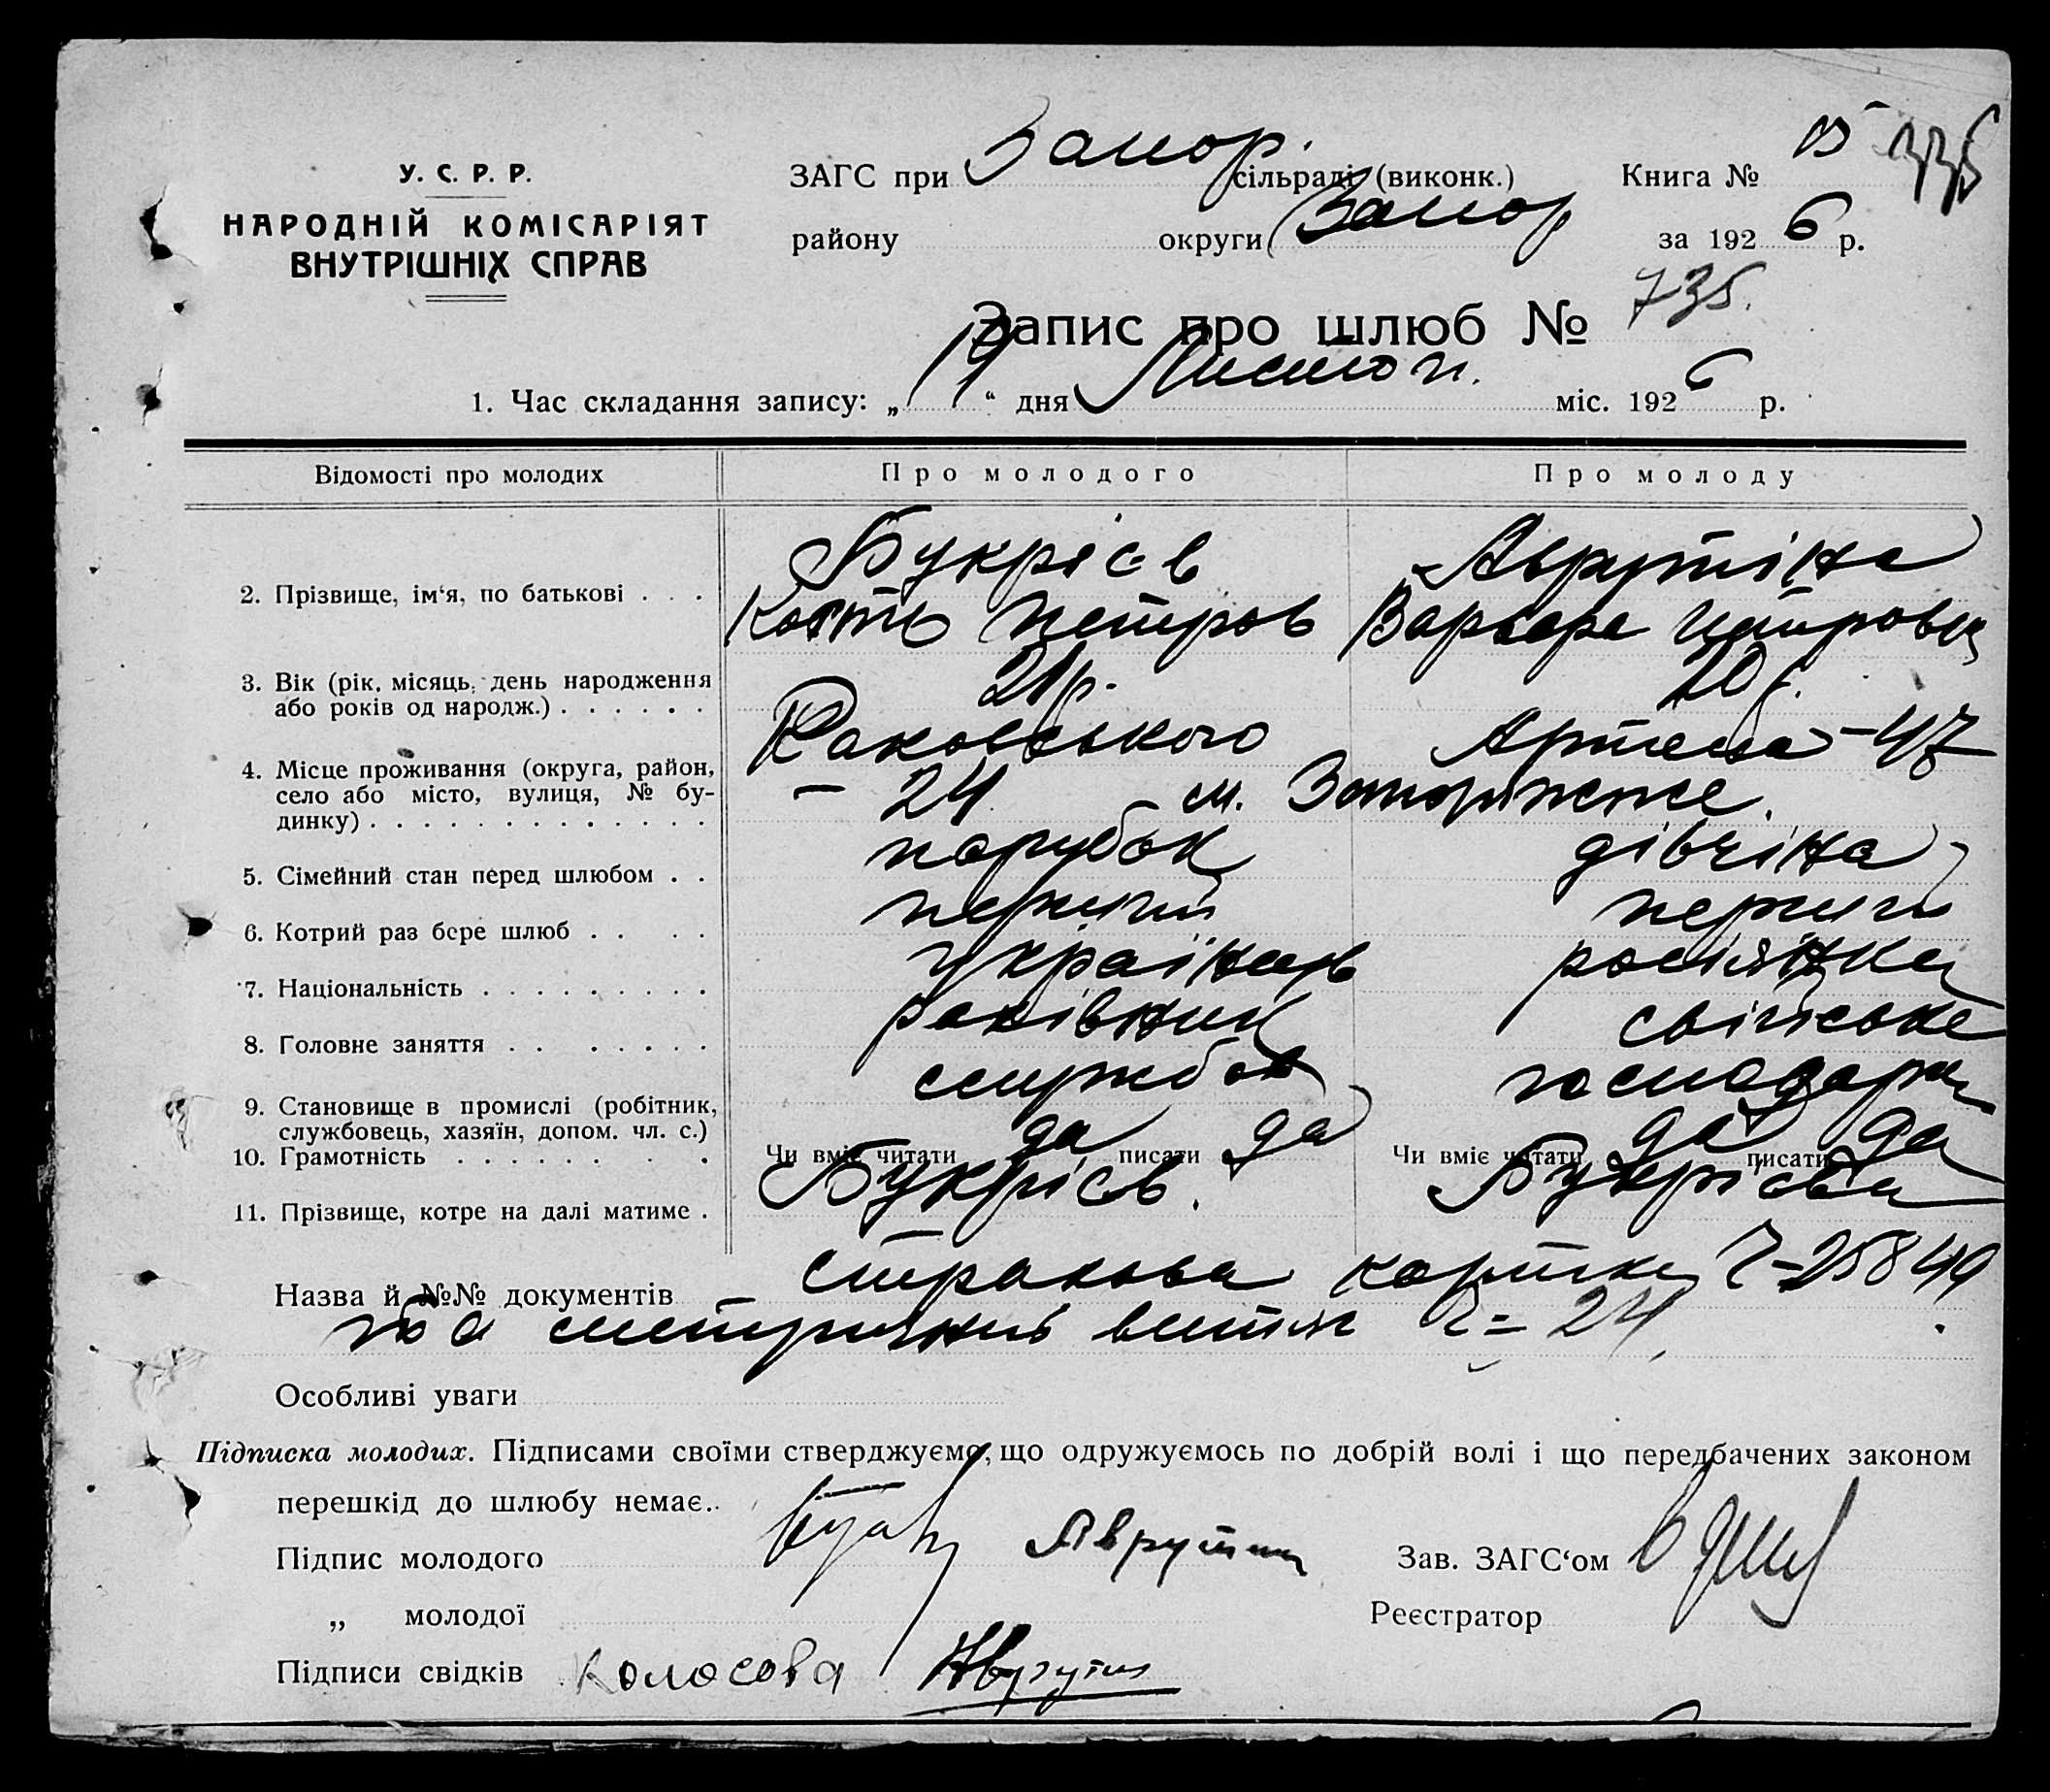 У. С. Р. Р.
НАРОДНІЙ КОМІСАРІЯТ
ВНУТРІШНІХ СПРАВ
ЗАГС при Запор. сільраді (виконк.) Книга №
району округи Запор за 1926 р.
Запис про шлюб № 735.
1. Час складання запису: „19“ дня Листоп. міс. 1926 р.
Відомості про молодих Про молодого Про молоду
2. Прізвище, ім‘я, по батькові . . . Букрієв Аврутіна
Кость Петров Варвара Петровн
3. Вік (рік, місяць, день народження 21 р. 20 р.
або років од народж.) . . . . . .
4. Місце проживання (округа, район, Раковського Артема – 47
село або місто, вулиця, № бу- – 24 – м. Запоріжже.
динку) . . . . . . . . . . . . .
5. Сімейний стан перед шлюбом . . парубок дівчіна
6. Котрий раз бере шлюб . . . . перший перши
7. Національність . . . . . . . . . українець росіянка
8. Головне заняття . . . . . . . . свійське
9. Становище в промислі (робітник, службов господарк
службовець, хазяїн, допом. чл. с.)
10. Грамотність . . . . . . . . Чи вміє читати да писати да Чи вміє читати да писати да
11. Прізвище, котре на далі матиме . Букрієв. Букрієва
Назва й №№ документів – страхова картка Ч–25849
та витяг Ч= 24
Особливі уваги
Підписка молодих. Підписами своїми стверджуємо, що одружуємось по добрій волі і що передбачених законом
перешкід до шлюбу немає.
Підпис молодого Аврутин Зав. ЗАГС‘ом
„ молодої Реєстратор
Підписи свідків Колосова Аврутин